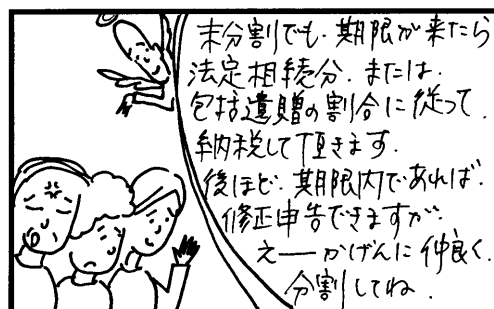 未分割でも、期限が来たら
法定相続分、または、
包括遺贈の割合に従って、
納税して頂きます。
後ほど、期限内であれば、
修正申告できますが、
え――かげんに仲良く、
分割してね。